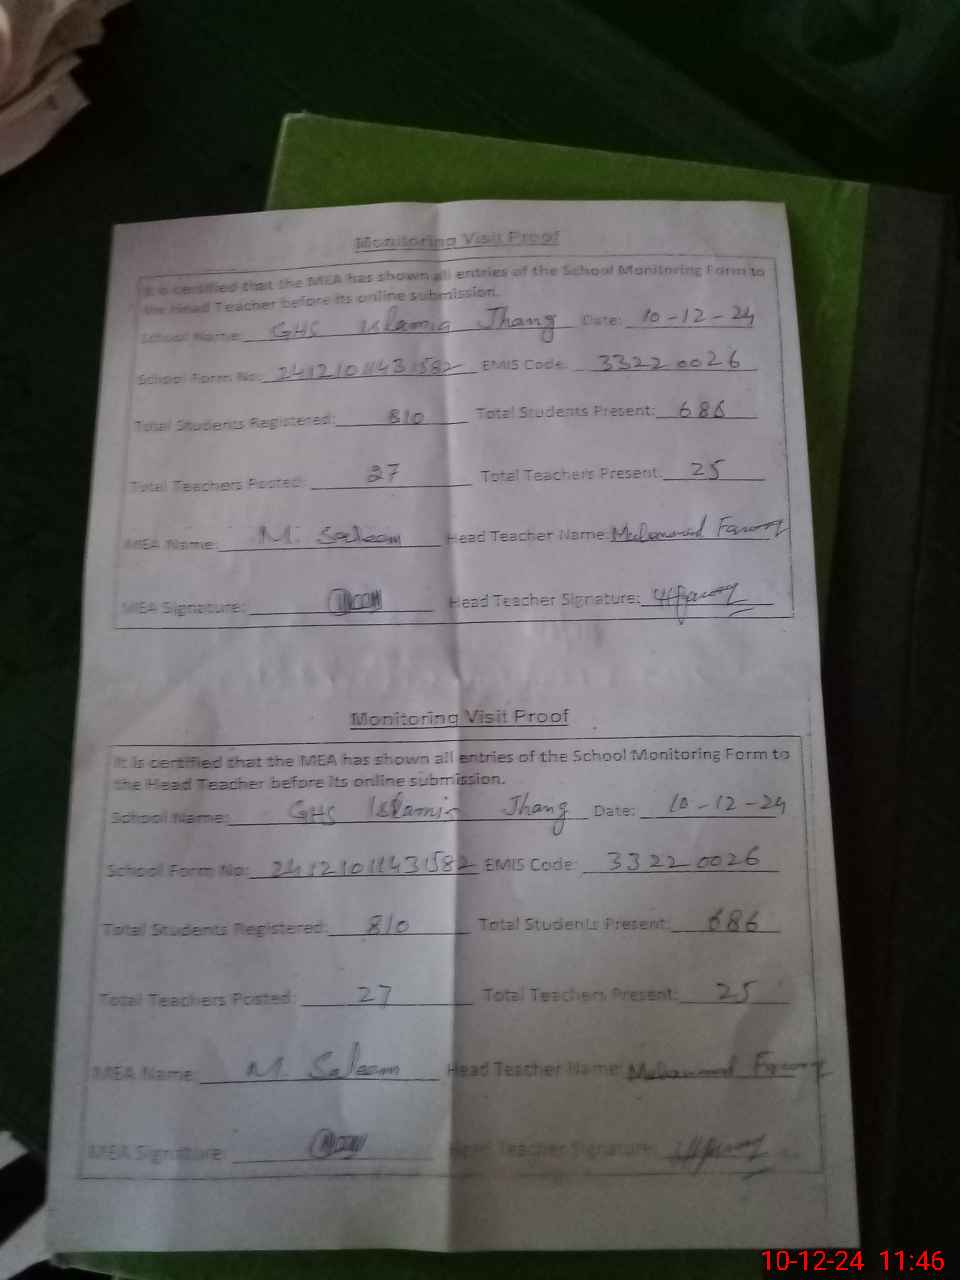 Monitoring Visit Proof
It is certified that the MEA has shown all entries of the School Monitoring Form to
the Head Teacher before its online submission.
School Name: GHS Islamia Jhang Date: 10-12-24
School Form No: 24121011431582 EMIS Code: 33220026
Total Students Registered: 810 Total Students Present: 686
Total Teachers Posted: 27 Total Teachers Present: 25
MEA Name: M. Saleem Head Teacher Name: Muhammad Farooq
MEA Signature: Head Teacher Signature:
Monitoring Visit Proof
It is certified that the MEA has shown all entries of the School Monitoring Form to
the Head Teacher before its online submission.
School Name: GHS Islamia Jhang Date: 10-12-24
School Form No: 24121011431582 EMIS Code: 33220026
Total Students Registered: 810 Total Students Present: 686
Total Teachers Posted: 27 Total Teachers Present: 25
MEA Name: M. Saleem Head Teacher Name: Muhammad Farooq
MEA Signature: Head Teacher Signature:
10-12-24 11:46